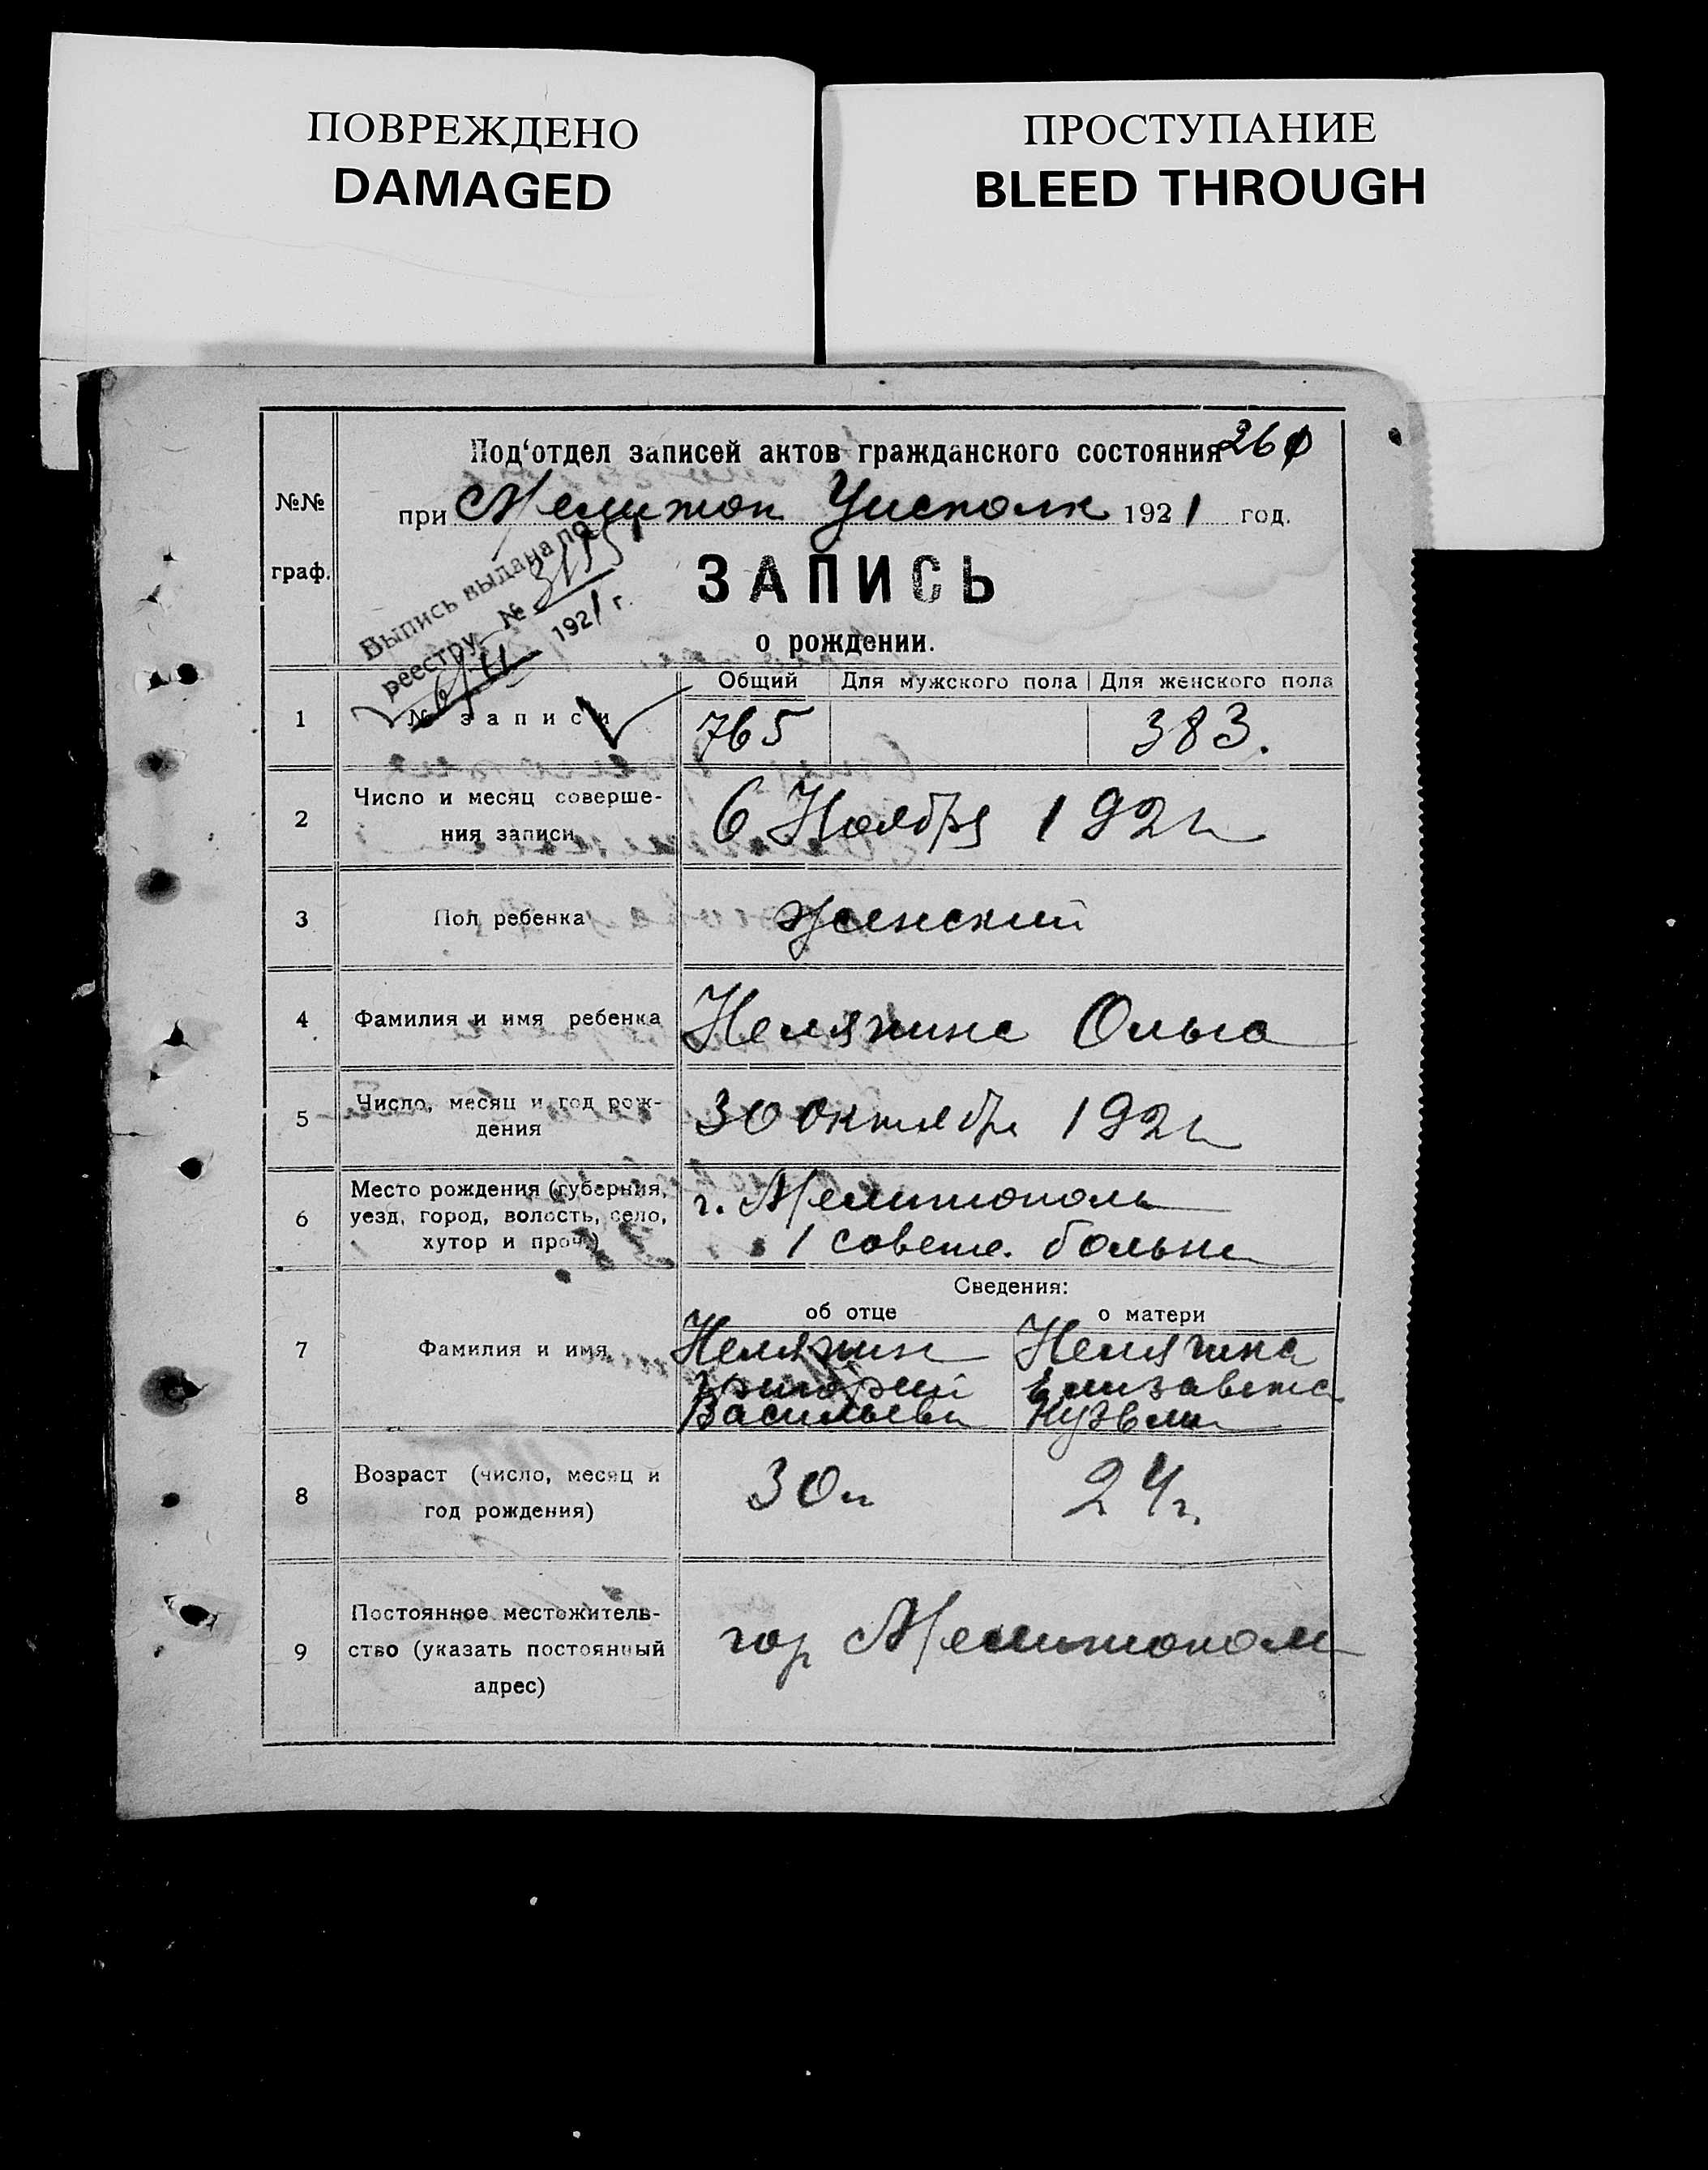 ПОВРЕЖДЕНО
DAMAGED
ПРОСТУПАНИЕ
BLEED THROUGH
Под‘отдел записей актов гражданского состояния 260
при Мелитоп Уисполк 1921 год.
№№
граф.
ЗАПИСЬ
о рождении.
Выпись выдана по
реестру № 3155
6/11 1921 г.
Общий Для мужского пола Для женского пола
1 № записи 765 383.
2 Число и месяц соверше-
ния записи
6 Ноября 1921
3 Пол ребенка женский
4 Фамилия и имя ребенка Ольга
5 Число, месяц и год рож-
дения
30 октября 1921
6 Место рождения (губерния,
уезд, город, волость, село,
хутор и проч.)
г. Мелитополь
1 советс. больн
Сведения:
об отце о матери
7 Фамилия и имя
Григорий Елизавета
Васильев Кузьм
8 Возраст (число, месяц и
год рождения)
30 л 24 г.
9 Постоянное местожитель-
ство (указать постоянный
адрес)
гор Мелитополь